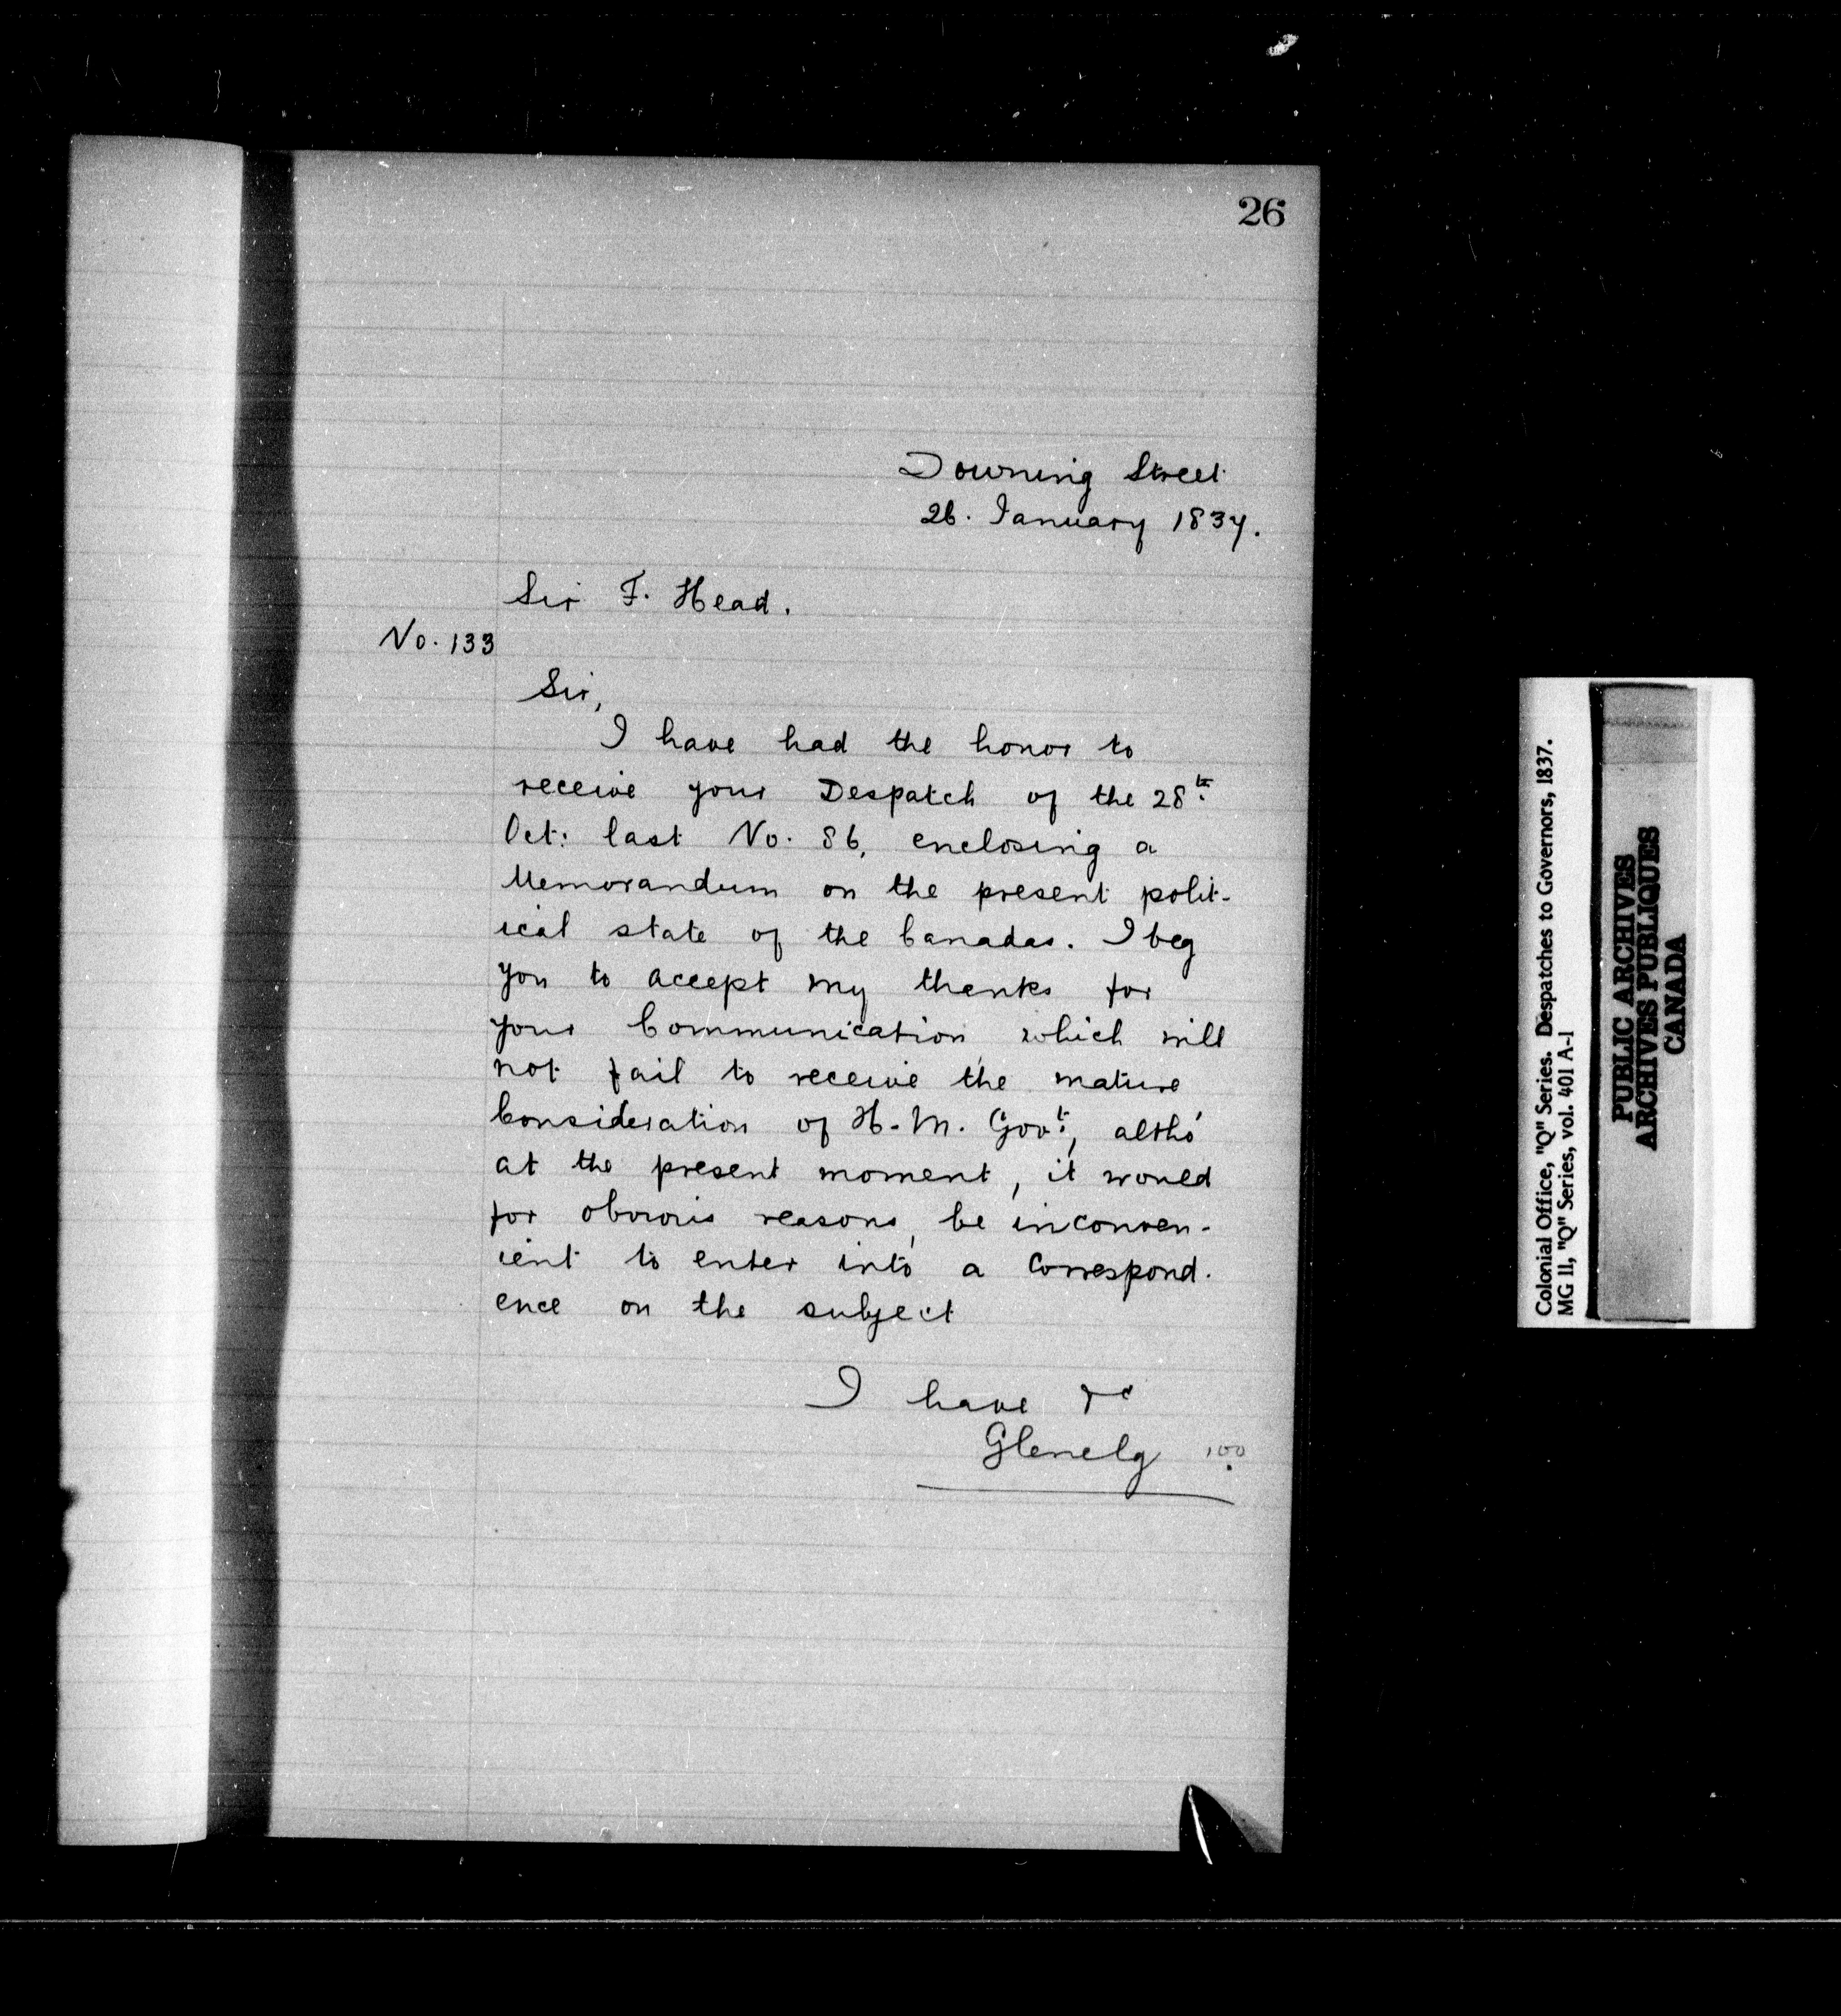 26
Downing Street
26. January 1837.
Sir F. Head.
No. 133
Sir,
I have had the honor to
receive your Despatch of the 28th
Oct: last No. 86, enclosing a
Memorandum on the present polit-
ical state of the Canadas. I beg
you to accept my thanks for
your Communication, which will
not fail to receive the mature
Consideration of H. M. Govt, altho'
at the present moment, it would
for obvious reasons, be inconven-
ient to enter into a Correspond-
ence on the subject
I have &c
Glenelg 100
Colonial Office, "Q" Series. Despatches to Governors, 1837.
MG 11, "Q" Series, vol. 401 A-1
PUBLIC ARCHIVES
ARCHIVES PUBLIQUES
CANADA